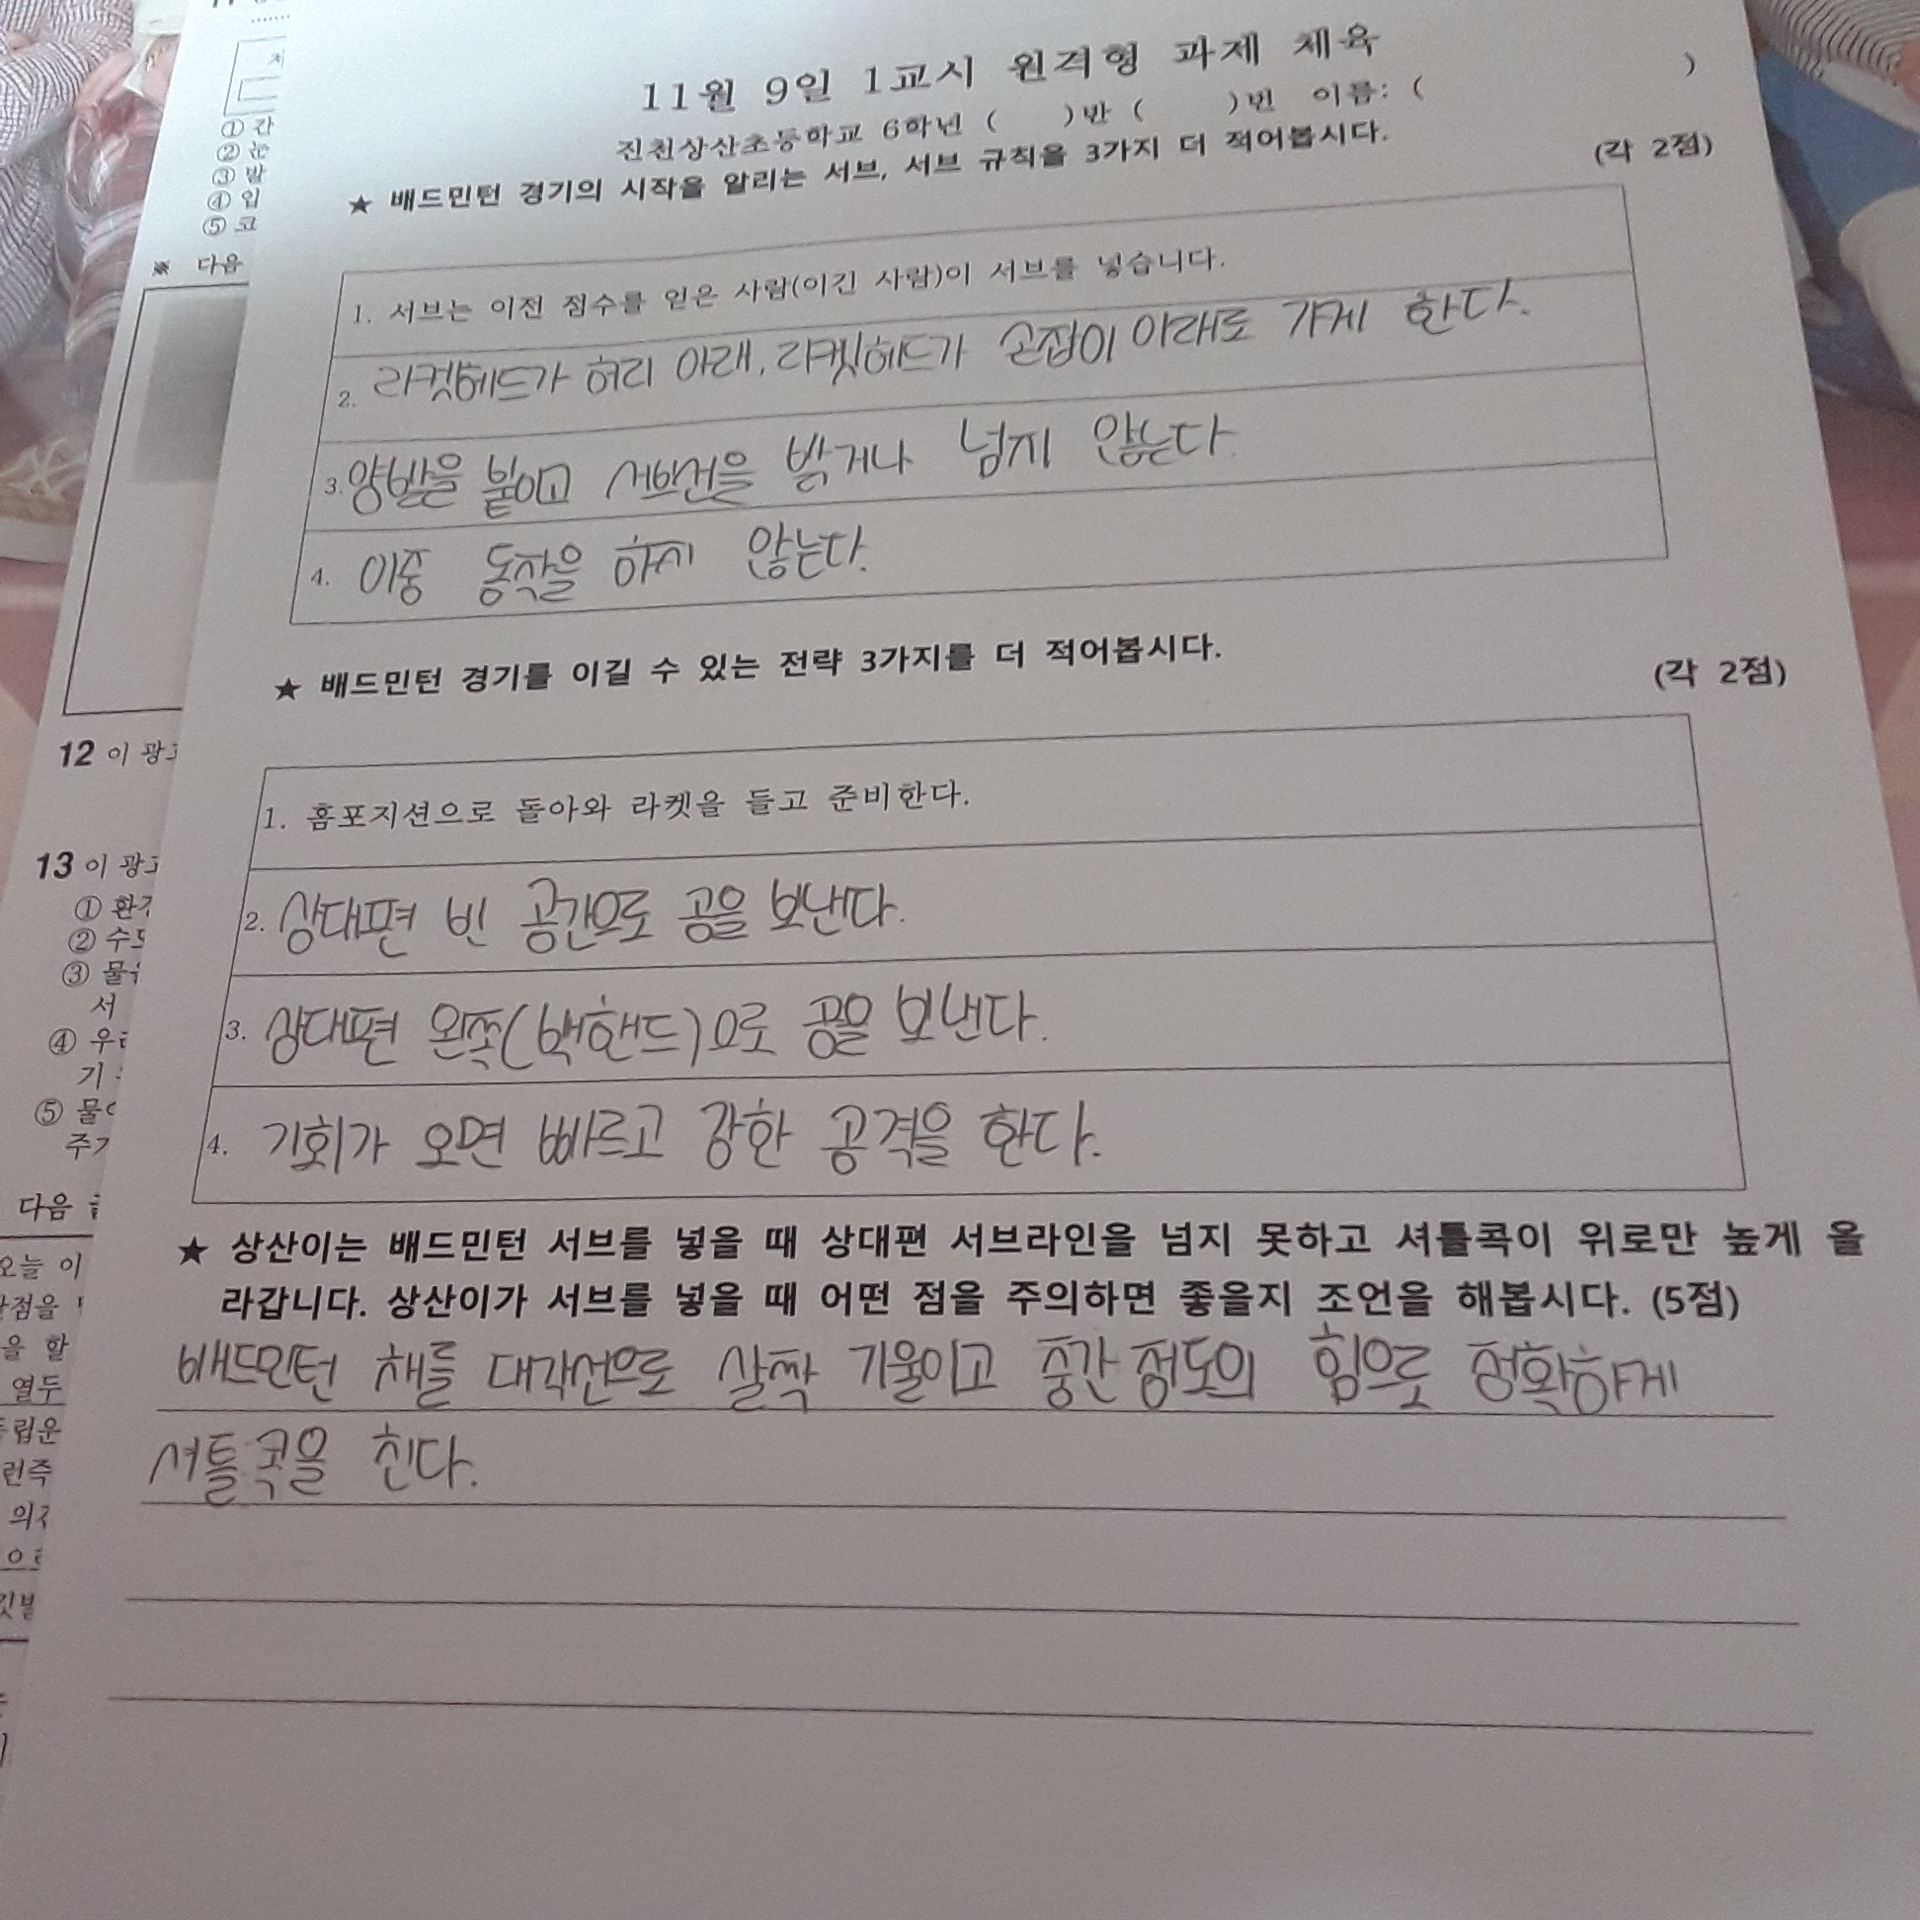 11월 9일 1교시 원격형 과제 체육
진천상산초등학교 6학년 ( )반 ( )번 이름: ( )
★ 배드민턴 경기의 시작을 알리는 서브, 서브 규칙을 3가지 더 적어봅시다.
(각 2점)
1. 서브는 이전 점수를 얻은 사람(이긴 사람)이 서브를 넣습니다.
2. 라켓헤드가 허리 아래, 라켓헤드가 손잡이 아래로 가게 한다.
3. 양발을 붙이고 서브선을 밟거나 넘지 않는다.
4. 이중 동작을 하지 않는다.
★ 배드민턴 경기를 이길 수 있는 전략 3가지를 더 적어봅시다.
(각 2점)
1. 홈포지션으로 돌아와 라켓을 들고 준비한다.
2. 상대편 빈 공간으로 공을 보낸다.
3. 상대편 왼쪽(백핸드)으로 공을 보낸다.
4. 기회가 오면 빠르고 강한 공격을 한다.
★ 상산이는 배드민턴 서브를 넣을 때 상대편 서브라인을 넘지 못하고 셔틀콕이 위로만 높게 올
라갑니다. 상산이가 서브를 넣을 때 어떤 점을 주의하면 좋을지 조언을 해봅시다. (5점)
배드민턴 채를 대각선으로 살짝 기울이고 중간 정도의 힘으로 정확하게
셔틀콕을 친다.
① 간
② 눈
③ 발
④ 입
⑤ 코
※ 다음
12 이 광고
13 이 광고
①
② 수도
③ 물
서
④ 우리
기
⑤ 물
주
다음
오늘 이
점을
을 할
열두
립운
런즉
의
으로